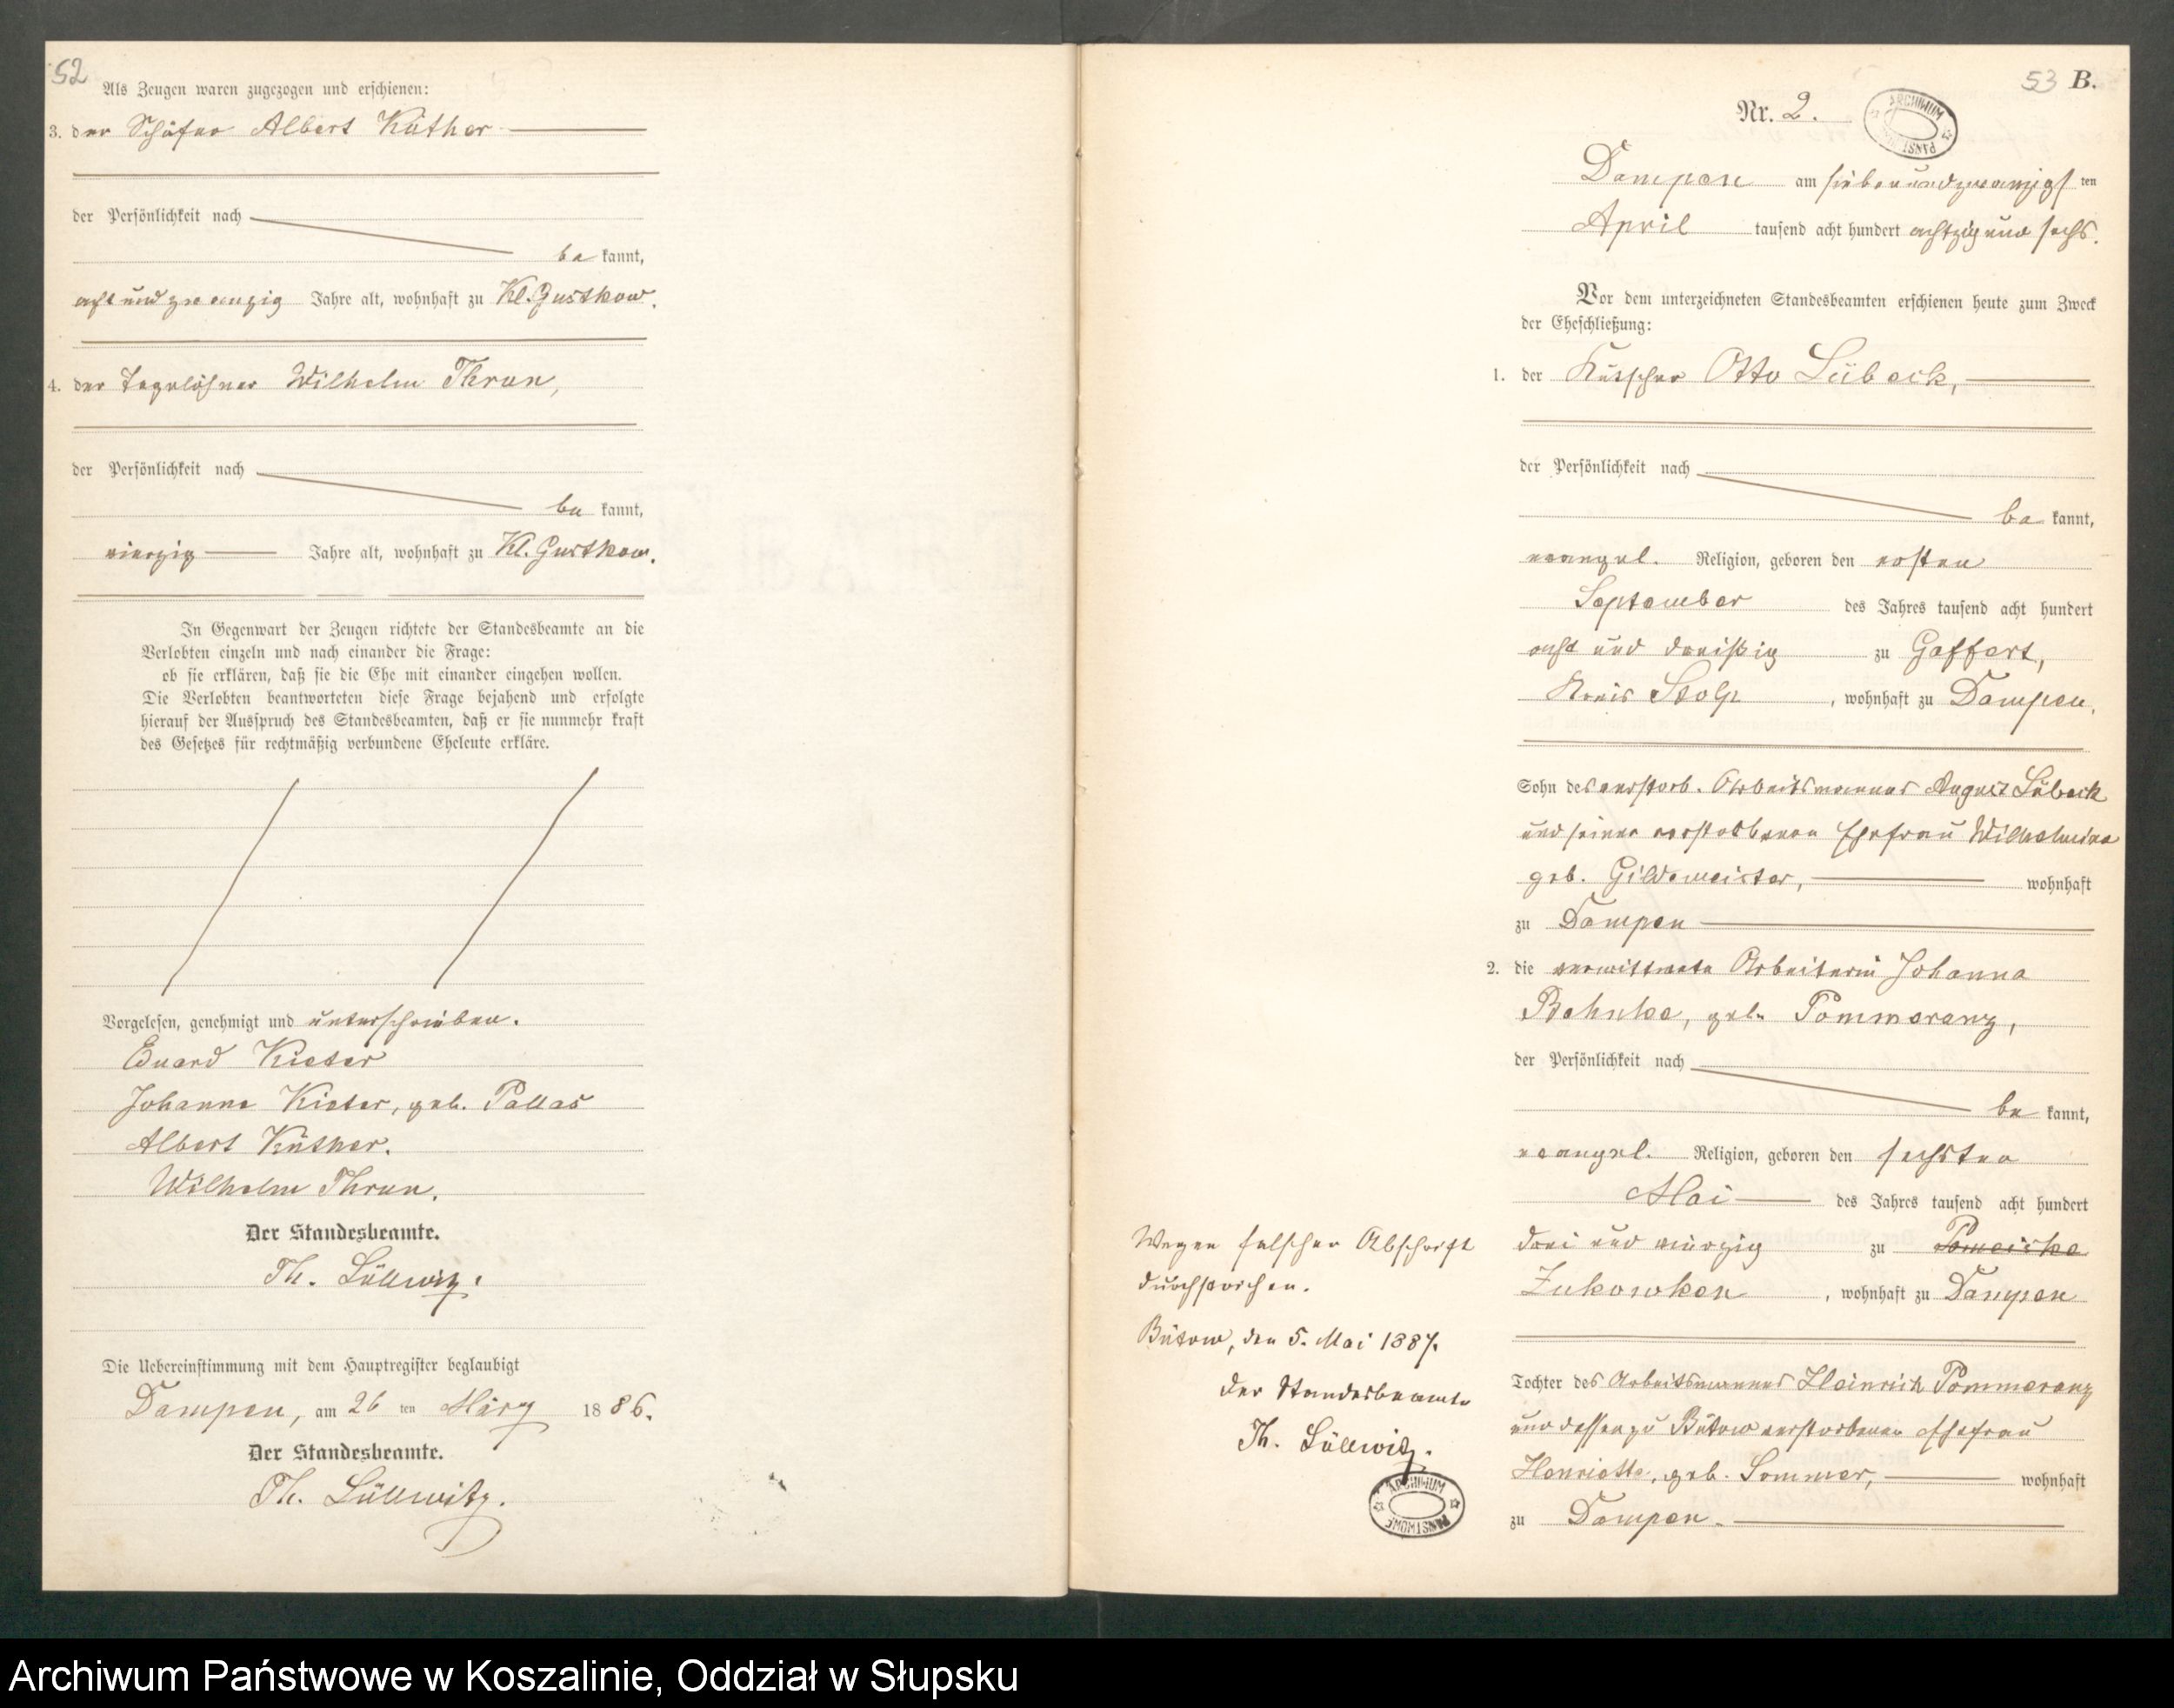 52
Als Zeugen waren zugezogen und erschienen:
3. der Schäfer Albert Küther
der Persönlichkeit nach
be kannt,
acht und zwanzig Jahre alt, wohnhaft zu Kl. Gustkow.
4. der Tagelöhner Wilhelm Thrun,
der Persönlichkeit nach
be kannt,
vierzig Jahre alt, wohnhaft zu Kl. Gustkow.
In Gegenwart der Zeugen richtete der Standesbeamte an die
Verlobten einzeln und nach einander die Frage:
ob sie erklären, daß sie die Ehe mit einander eingehen wollen.
Die Verlobten beantworteten diese Frage bejahend und erfolgte
hierauf der Ausspruch des Standesbeamten, daß er sie nunmehr kraft
des Gesetzes für rechtmäßig verbundene Eheleute erkläre.
Vorgelesen, genehmigt und unterschrieben.
Eduard Kieter
Johanne Kieter, geb. Pallas
Albert Küther.
Wilhelm Thrun.
Der Standesbeamte.
Th. Lüllwitz.
Die Uebereinstimmung mit dem Hauptregister beglaubigt
Dampen, am 26 ten März 18 86.
Der Standesbeamte.
Th. Lüllwitz.
53 B.
Nr. 2.
ARCHIWUM PAŃSTWOWE
Dampen am siebenundzwanzigs ten
April tausend acht hundert achtzig und sechs.
Vor dem unterzeichneten Standesbeamten erschienen heute zum Zweck
der Eheschließung:
1. der Kutscher Otto Lübeck,
der Persönlichkeit nach
be kannt,
evangel. Religion, geboren den ersten
September des Jahres tausend acht hundert
acht und dreißig zu Gaffert,
Kreis Stolp, wohnhaft zu Dampen,
Sohn des verstorb. Arbeitsmannes August Lübeck
und seiner verstorbenen Ehefrau Wilhelmine
geb. Gildemeister, wohnhaft
zu Dampen
2. die verwittwete Arbeiterin Johanna
Behnke, geb. Pommerenz,
der Persönlichkeit nach
be kannt,
evangel. Religion, geboren den sechsten
Mai des Jahres tausend acht hundert
drei und vierzig zu Pomeiske
Zukowken, wohnhaft zu Dampen
Tochter des Arbeitsmannes Heinrich Pommerenz
und dessen zu Bütow verstorbenen Ehefrau
Henriette, geb. Sommer, wohnhaft
zu Dampen.
Wegen falscher Abschrift
durchstrichen.
Bütow, den 5. Mai 1887.
Der Standesbeamte
Th. Lüllwitz.
ARCHIWUM PAŃSTWOWE
Archiwum Państwowe w Koszalinie, Oddział w Słupsku